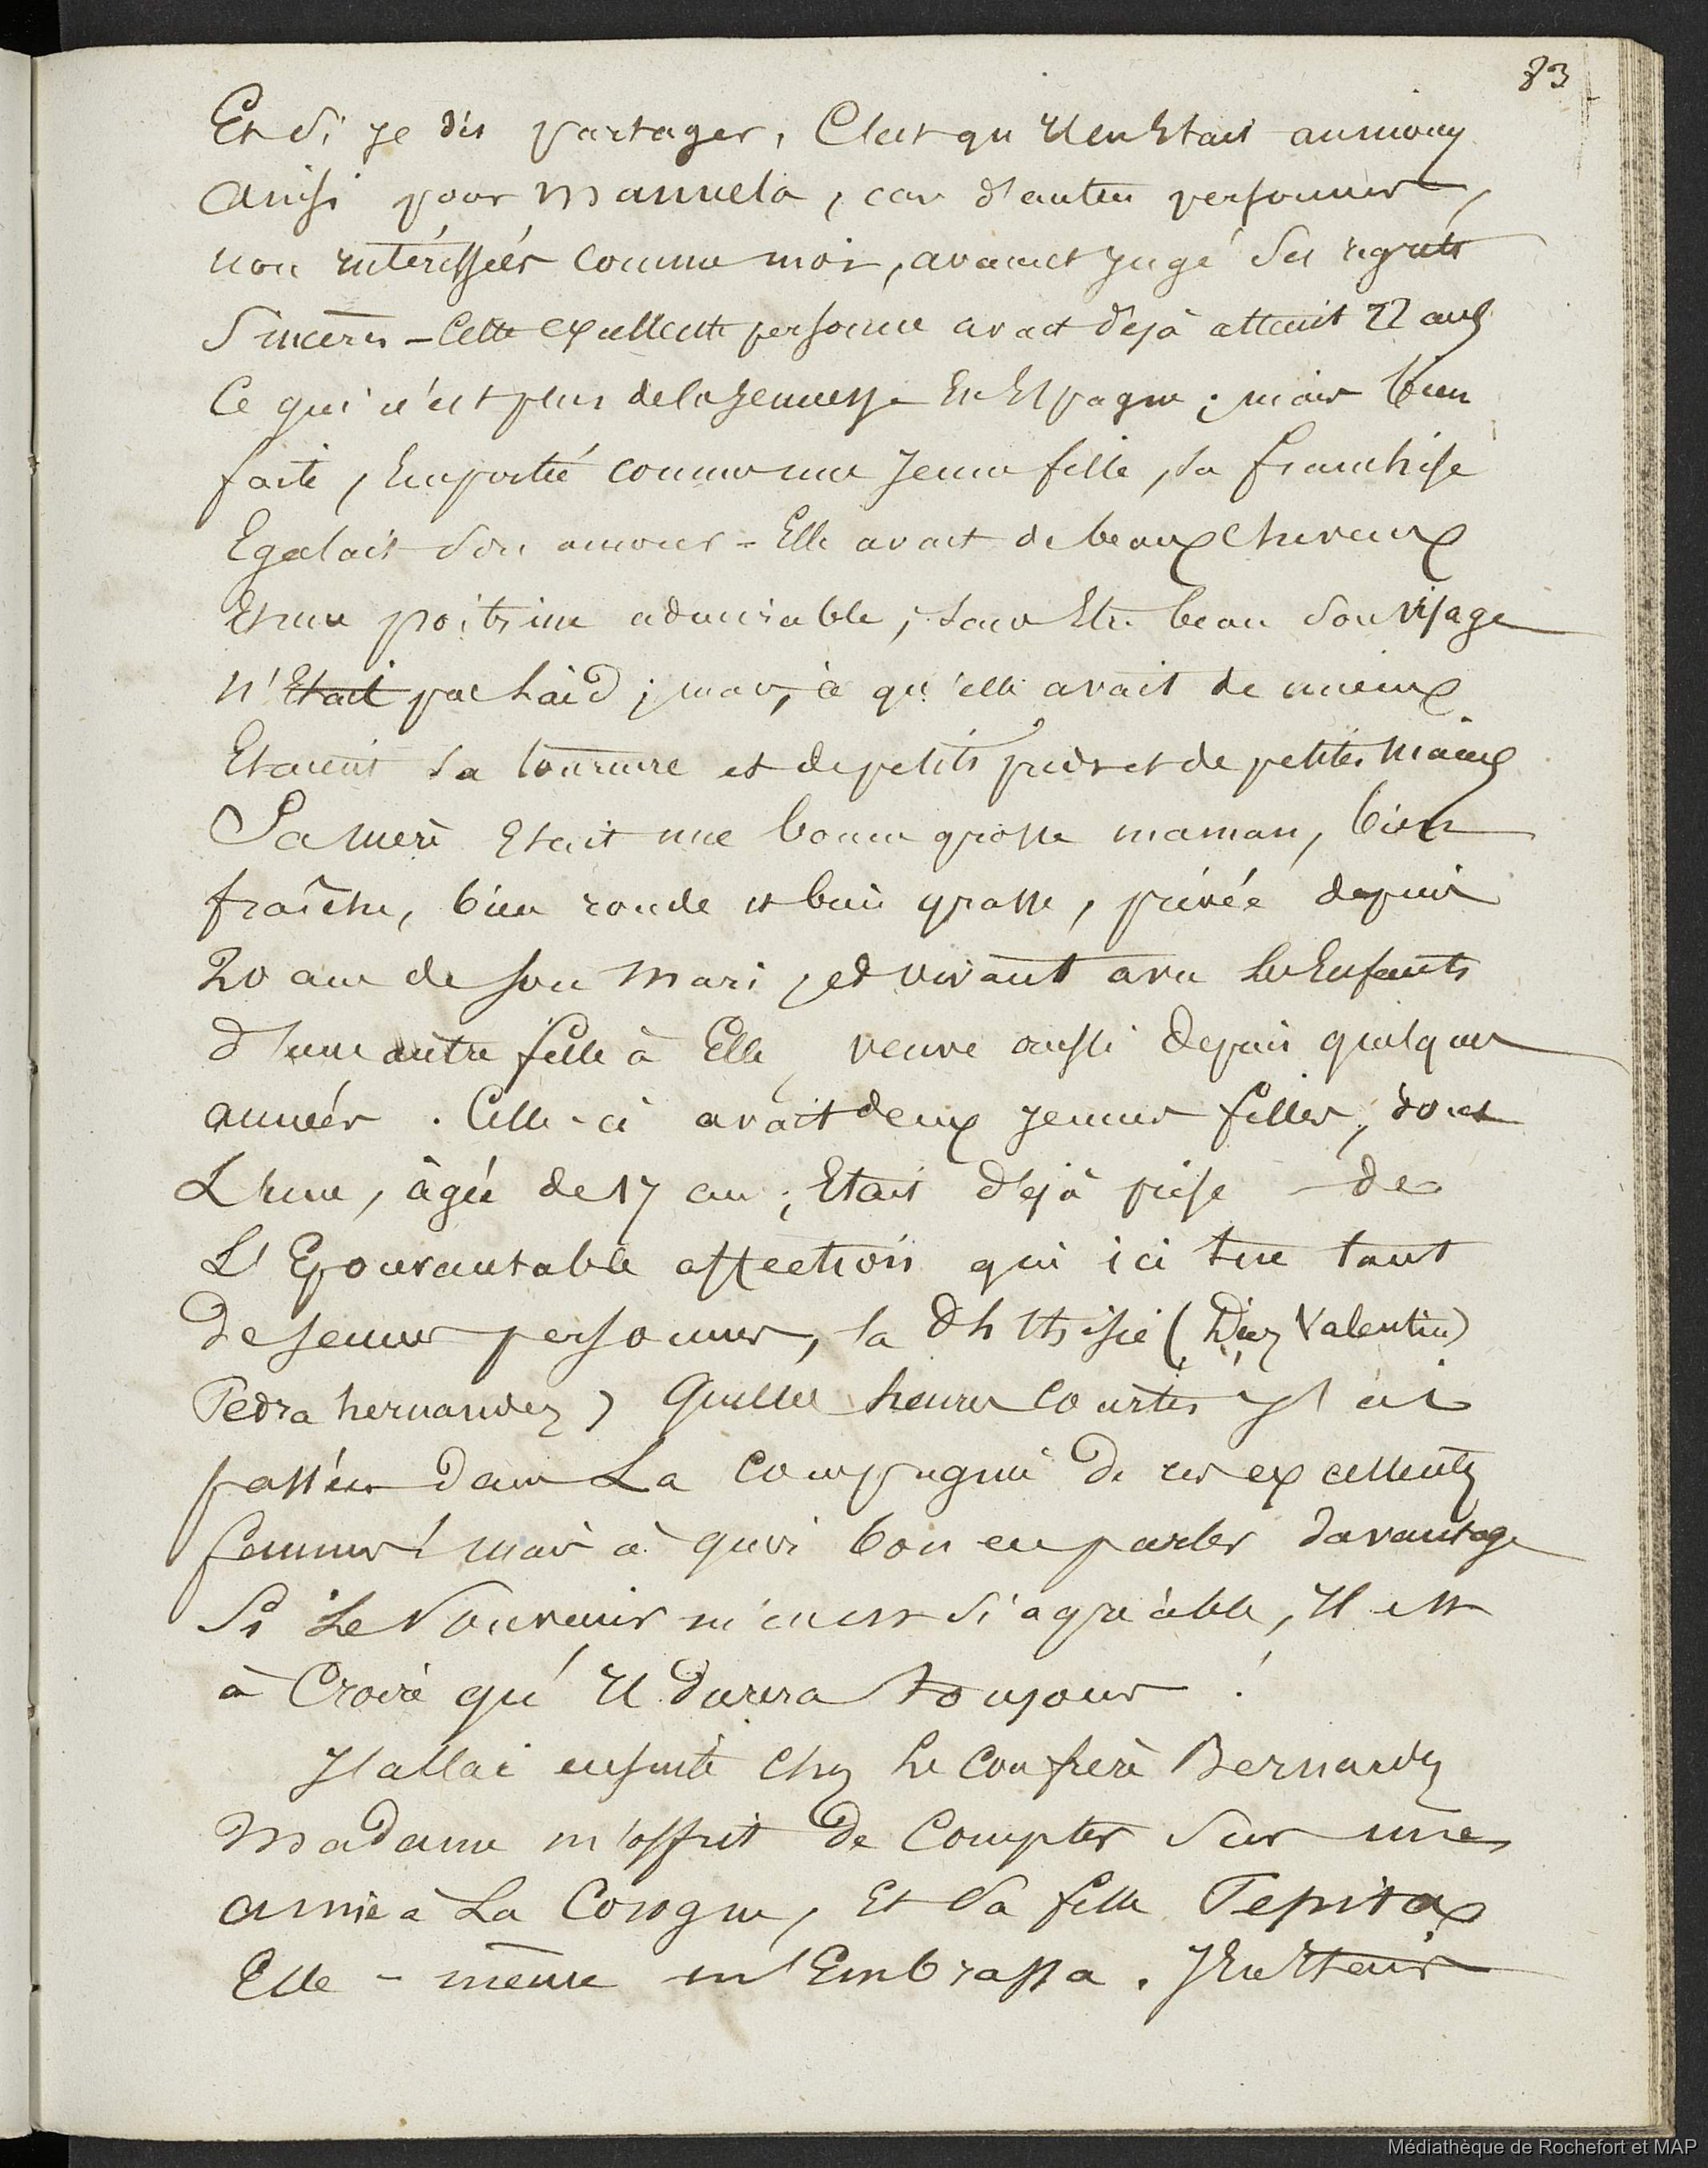 83
Et Si je dis partager, C'est qu'il en Etait au moins
Ainsi pour Manuela, car d'autres personnes,
non intéressées comme moi, avaient jugé Ses regrets
Sincères - Cette excellente personne avait déjà atteint 22 ans
Ce qui n'est plus de la jeunesse En Espagne ; mais bien
faite, Emportée comme une jeune fille, sa franchise
Egalait Son amour - Elle avait de beaux cheveux
Et une poitrine admirable, sans Etre beau Son visage
n'Etait pas Laid ; mais, ce qu'elle avait de mieux
Etaient Sa tournure et de petits pieds et de petites mains
Sa mere Etait une bonne grosse maman, bien
fraîche, bien ronde et bien grasse, privée depuis
20 ans de son mari, et vivant avec les Enfants
d'une autre fille à Elle, veuve aussi depuis quelques
années. Celle-ci avait deux jeunes filles, dont
L'une, âgée de 17 ans, Etait déjà prise de
L'Epouvantable affection qui ici tue tant
De jeunes personnes, la Phthisie (Diez Valentin)
Pedra hernandez) Quelles heures courtes J'ai
passées dans La Compagnie De ces excellentes
femmes ! mais à quoi bon en parler davantage
Si Le Souvenir m'en est Si agréable, Il est
à Croire qu'Il durera toujours !
J'allai ensuite Chez Le Confrère Bernardez
Madame m'offrit de Compter Sur une
amie à La Corogne, Et Sa fille Pepita
Elle-même m'Embrassa. J'en Etais
Médiathèque de Rochefort et MAP